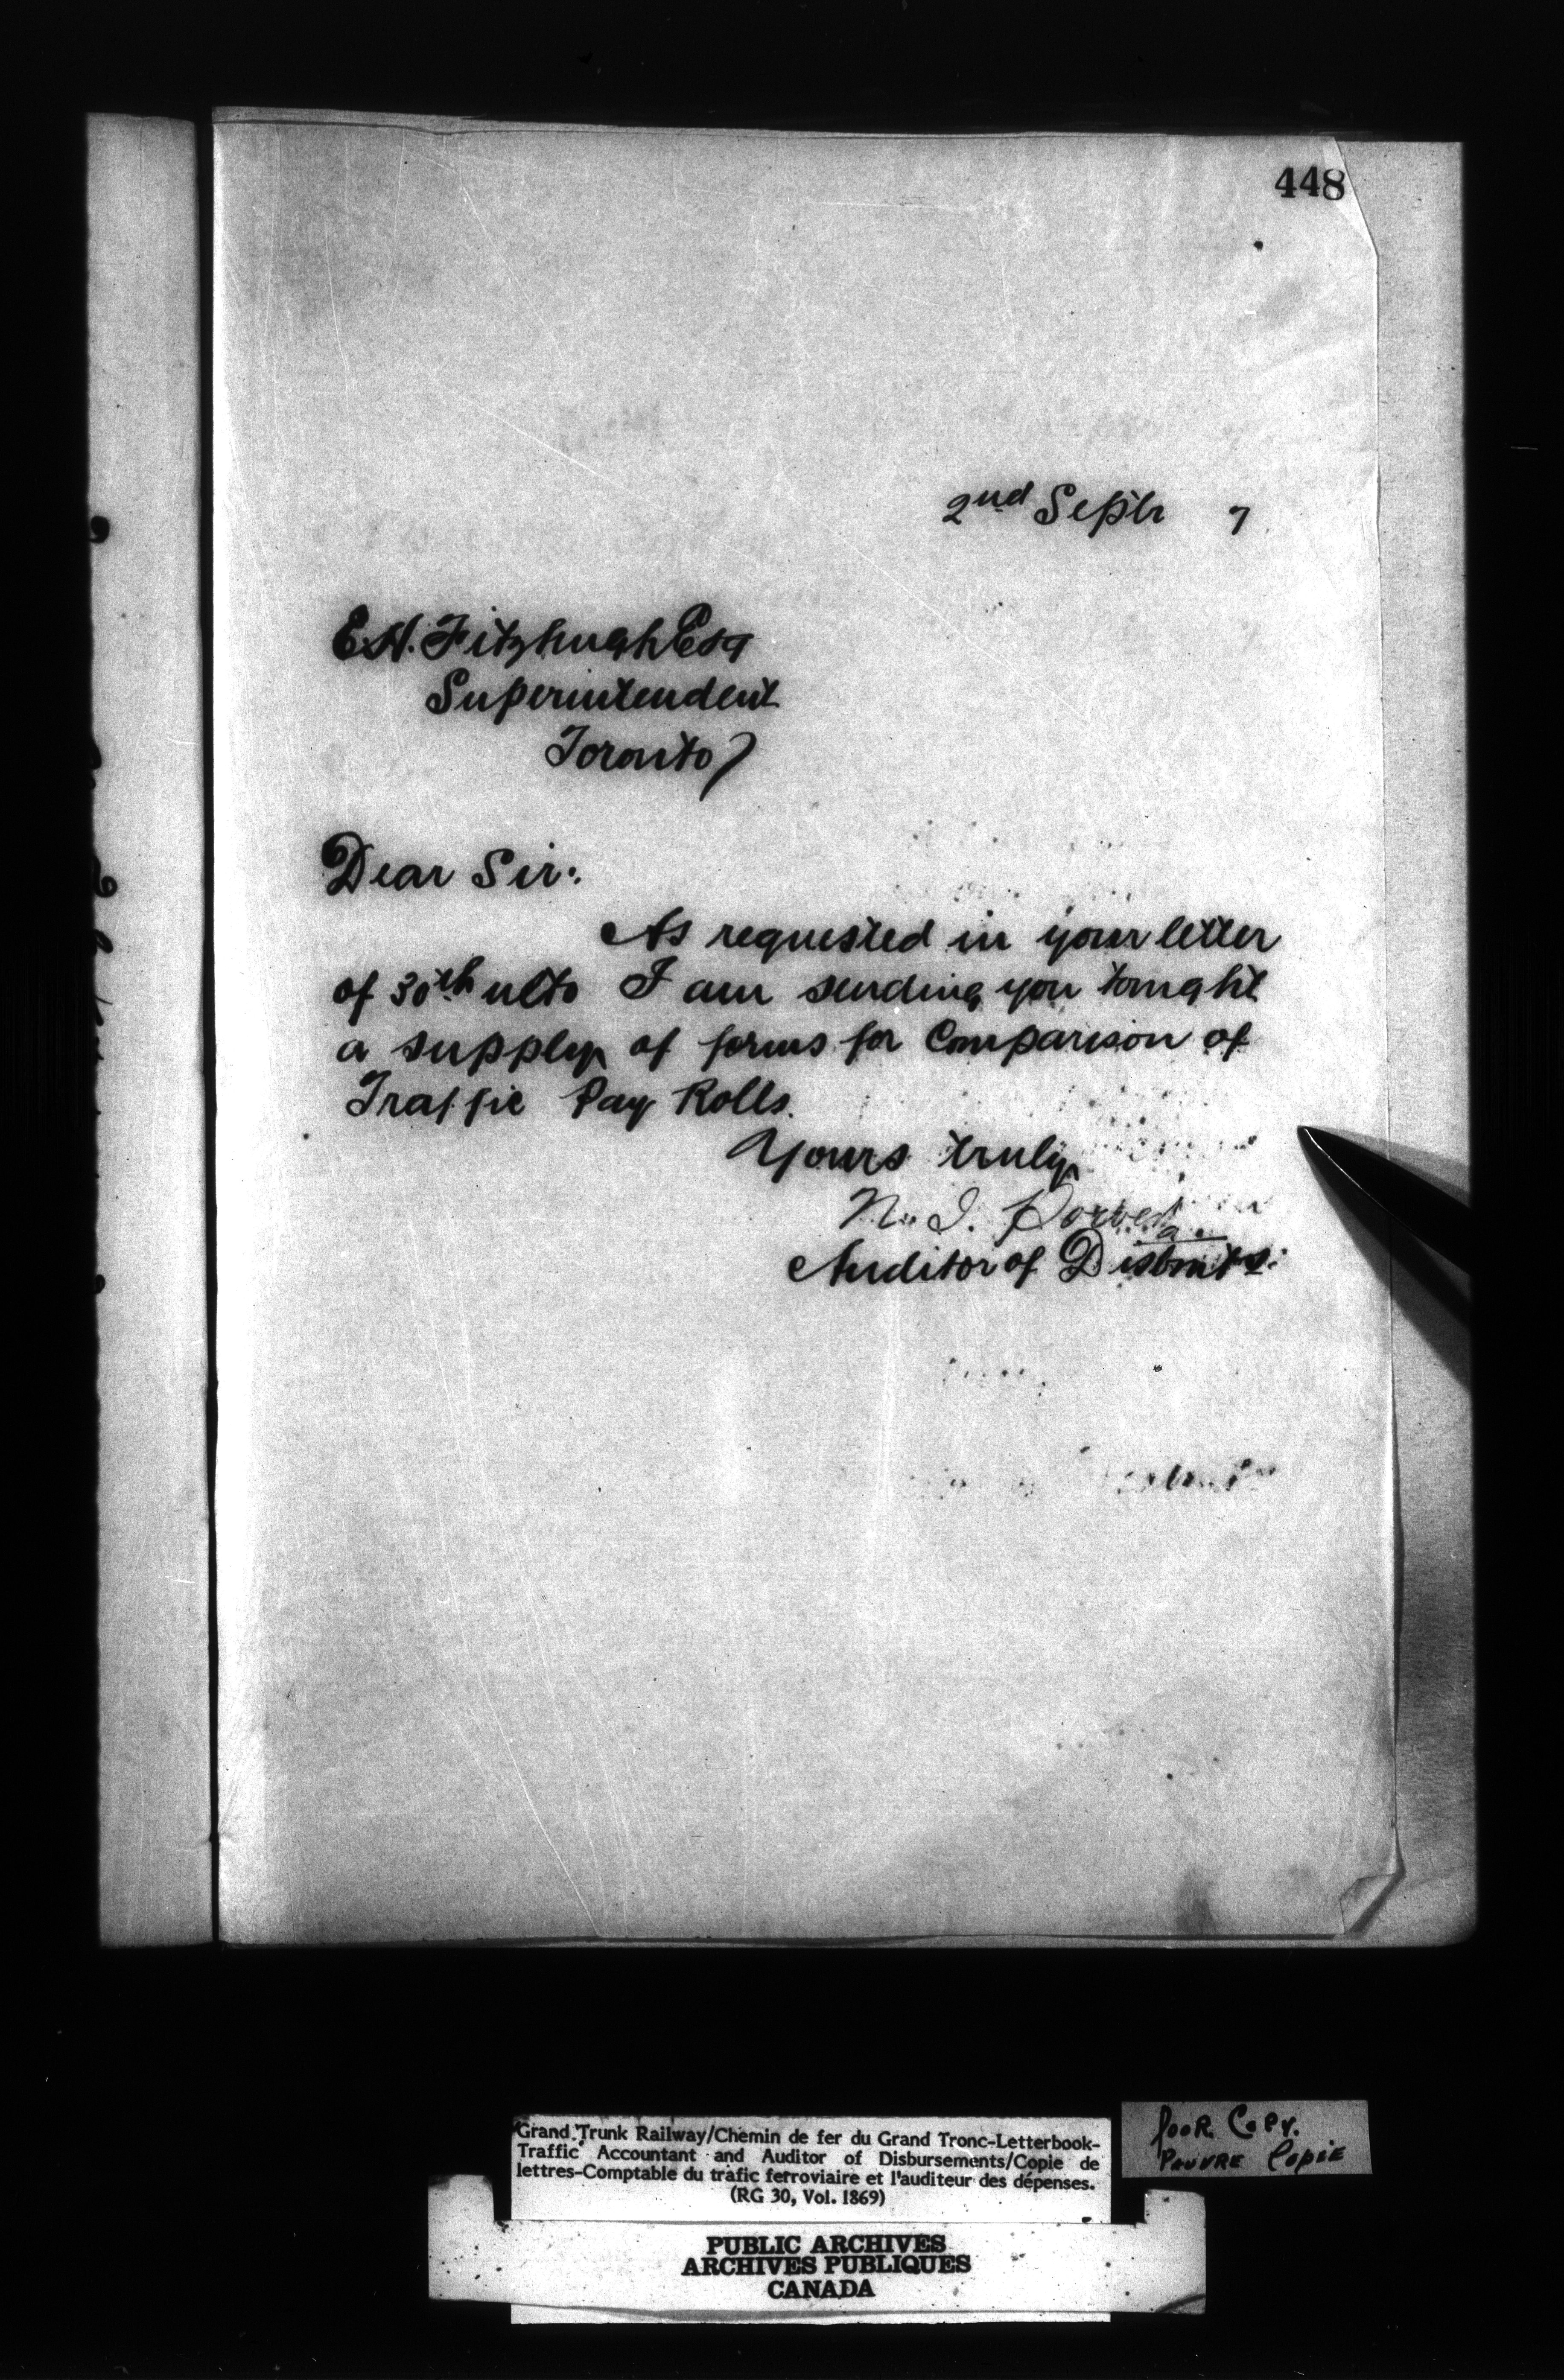 448
2nd Septr 7
E.H. Fitzhugh Esq
Superintendent
Toronto
Dear Sir:
As requested in your letter
of 30th ulto I am sending you tonight
a supply of forms for Comparison of
Traffic Pay Rolls.
Yours truly
N. J.
Auditor of Disbmts.
Grand Trunk Railway/Chemin de fer du Grand Tronc-Letterbook-
Traffic Accountant and Auditor of Disbursements/Copie de
lettres-Comptable du trafic ferroviaire et l'auditeur des dépenses.
(RG 30, Vol. 1869)
Poor Copy.
Pauvre Copie
PUBLIC ARCHIVES
ARCHIVES PUBLIQUES
CANADA